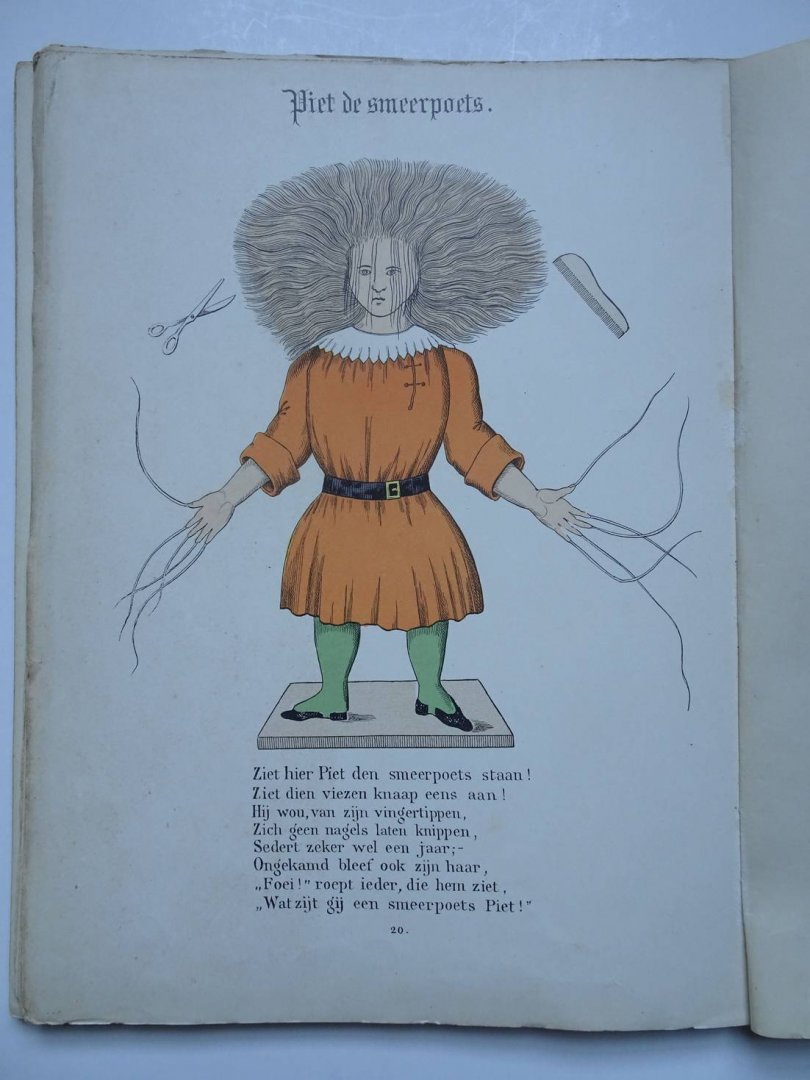 Piet de smeerpoets.
Ziet hier Piet den smeerpoets staan!
Ziet dien viezen knaap eens aan!
Hij wou, van zijn vingertippen,
Zich geen nagels laten knippen,
Sedert zeker wel een jaar;-
Ongekamd bleef ook zijn haar,
„Foei!” roept ieder, die hem ziet,
„Wat zijt gij een smeerpoets Piet!”
20.